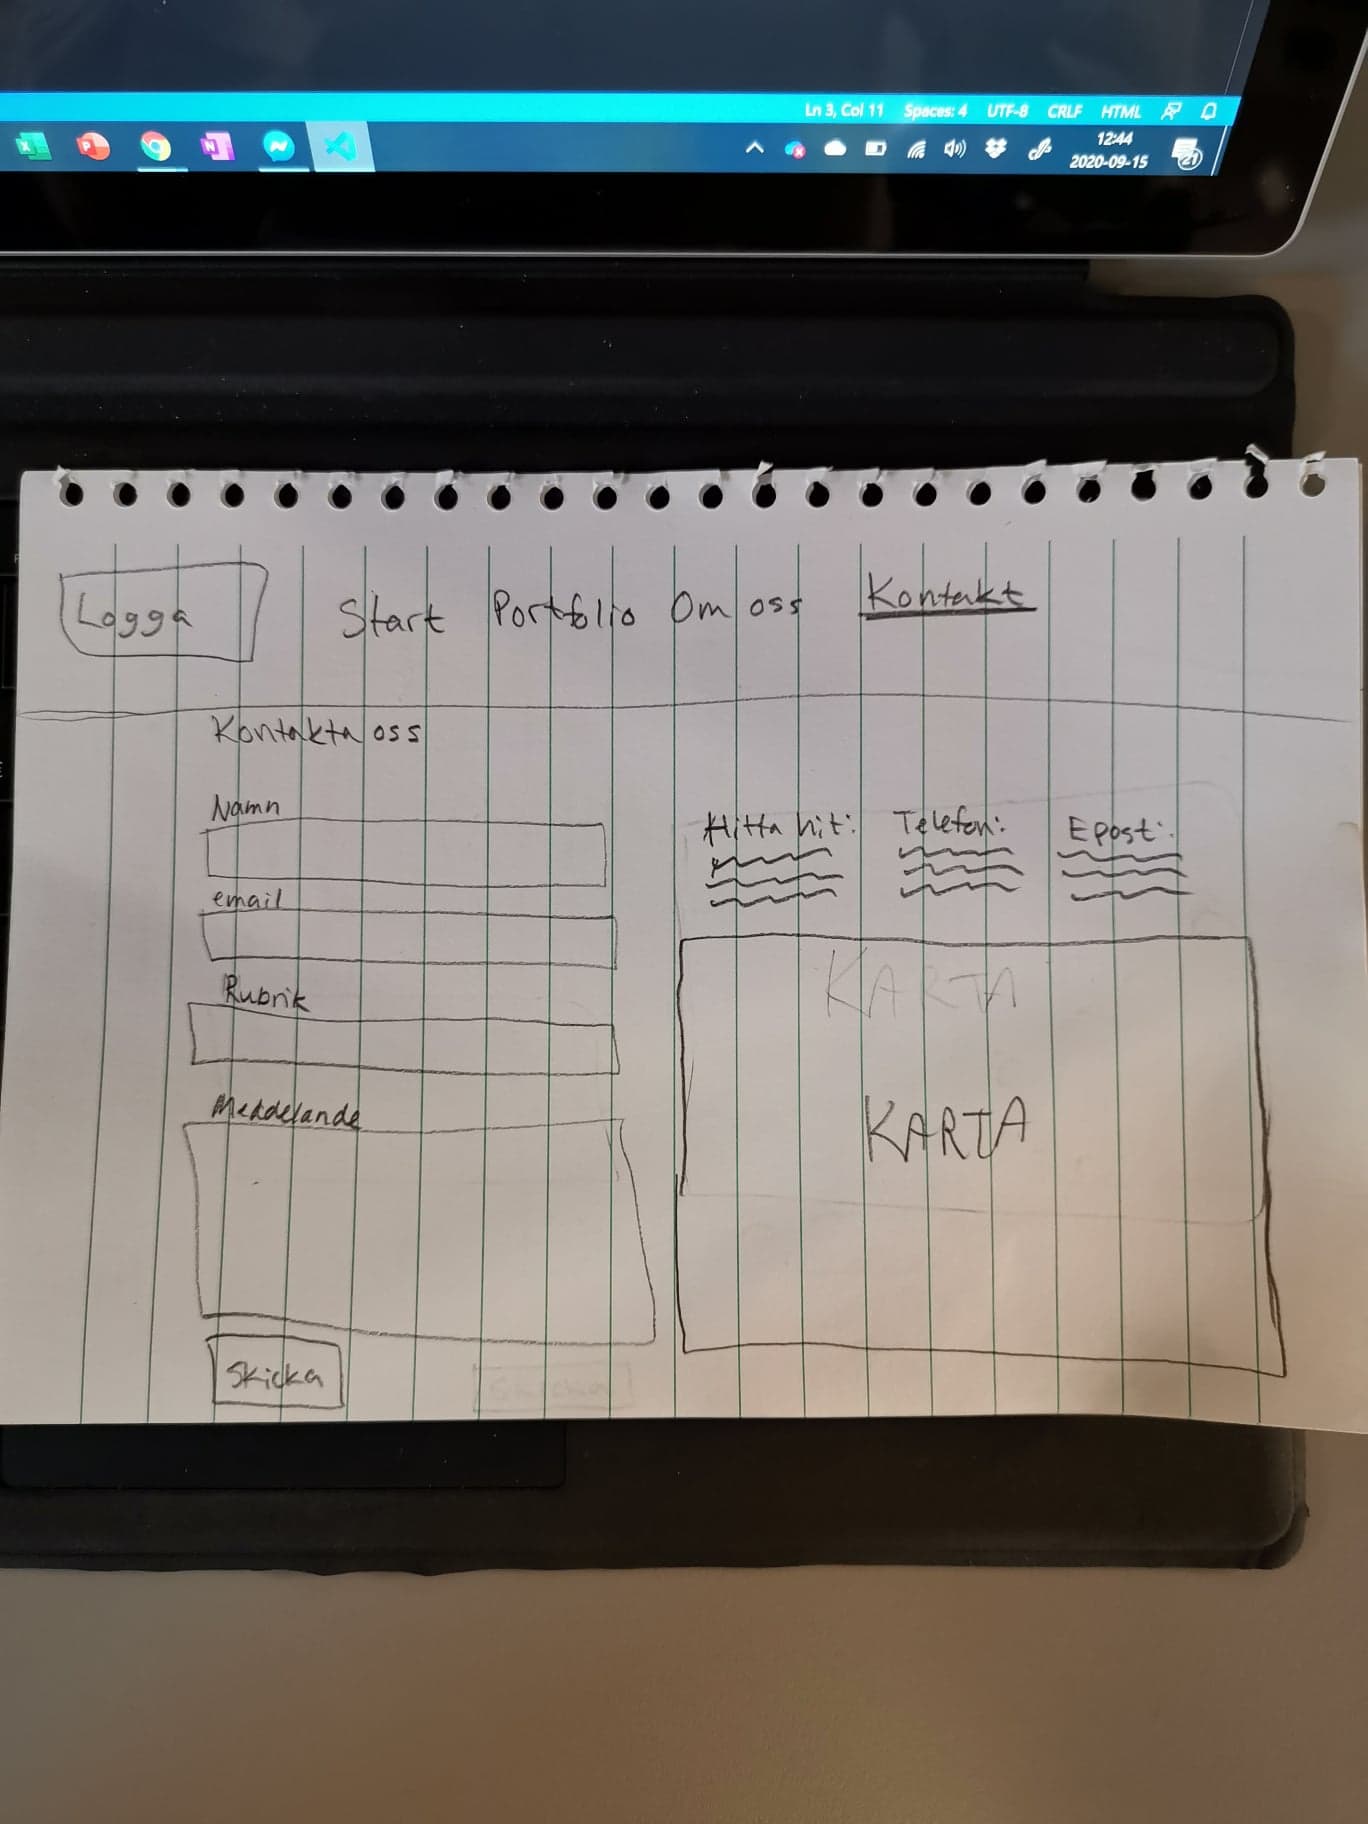 Ln 3, Col 11 Spaces: 4 UTF-8 CRLF HTML
12:44
2020-09-15
21
Logga Start Portfolio Om oss Kontakt
Kontakta oss
Namn
email
Rubrik
Meddelande
Skicka
Hitta hit: Telefon: Epost:
KARTA
KARTA
Skicka